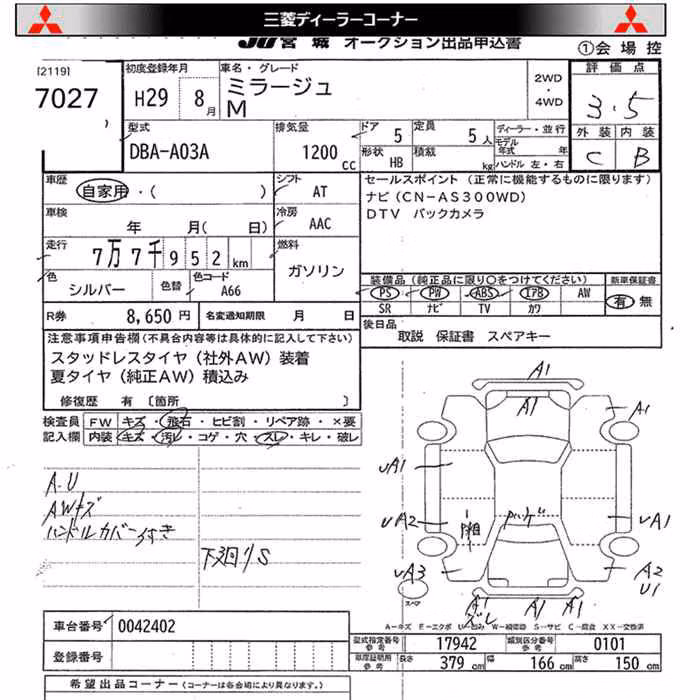 三菱ディーラーコーナー
JU宮城 オークション出品申込書
①会場控
[2119]
7027
初度登録年月
H29 8月
車名・グレード
ミラージュ
M
2WD
・
4WD
評価点
3.5
外装 内装
C B
型式
DBA-A03A
排気量
1200 cc
ドア 5
定員 5人
形状 HB
積載 kg
ディーラー・並行
モデル年式 年
ハンドル 左・右
車歴
自家用・( )
シフト AT
車検
年 月( 日)
冷房 AAC
走行
7万7千952km
燃料
ガソリン
色
シルバー
色替
色コード
A66
R券 8,650円
名変通知期限 月 日
セールスポイント (正常に機能するものに限ります)
ナビ(CN-AS300WD)
DTV バックカメラ
装備品(純正品に限り○をつけてください)
新車保証書
PS PW ABS エアB AW
SR ナビ TV カワ
有 無
後日品
取説 保証書 スペアキー
注意事項申告欄(不具合内容等は具体的に記入して下さい)
スタッドレスタイヤ(社外AW)装着
夏タイヤ(純正AW)積込み
修復歴 有〔箇所 〕
検査員
記入欄
FW キズ・飛石・ヒビ割・リペア跡・×要
内装 キズ・汚レ・コゲ・穴・スレ・キレ・破レ
A.U
AWキズ
ハンドルカバー付き
下廻りS
A1
A1
A1
UA1
UA2
UA1
UA3
A2
U1
A1
スレ
A1
A1
スペア
A-キズ E-エクボ U-凹み W-補修跡 S-サビ C-腐食 XX-交換済
車台番号 0042402
登録番号
型式指定番号
参考
17942
類別区分番号
参考
0101
車庫証明用
参考
長さ 379cm 幅 166cm 高さ 150cm
希望出品コーナー(コーナーは各会場により異なります。)